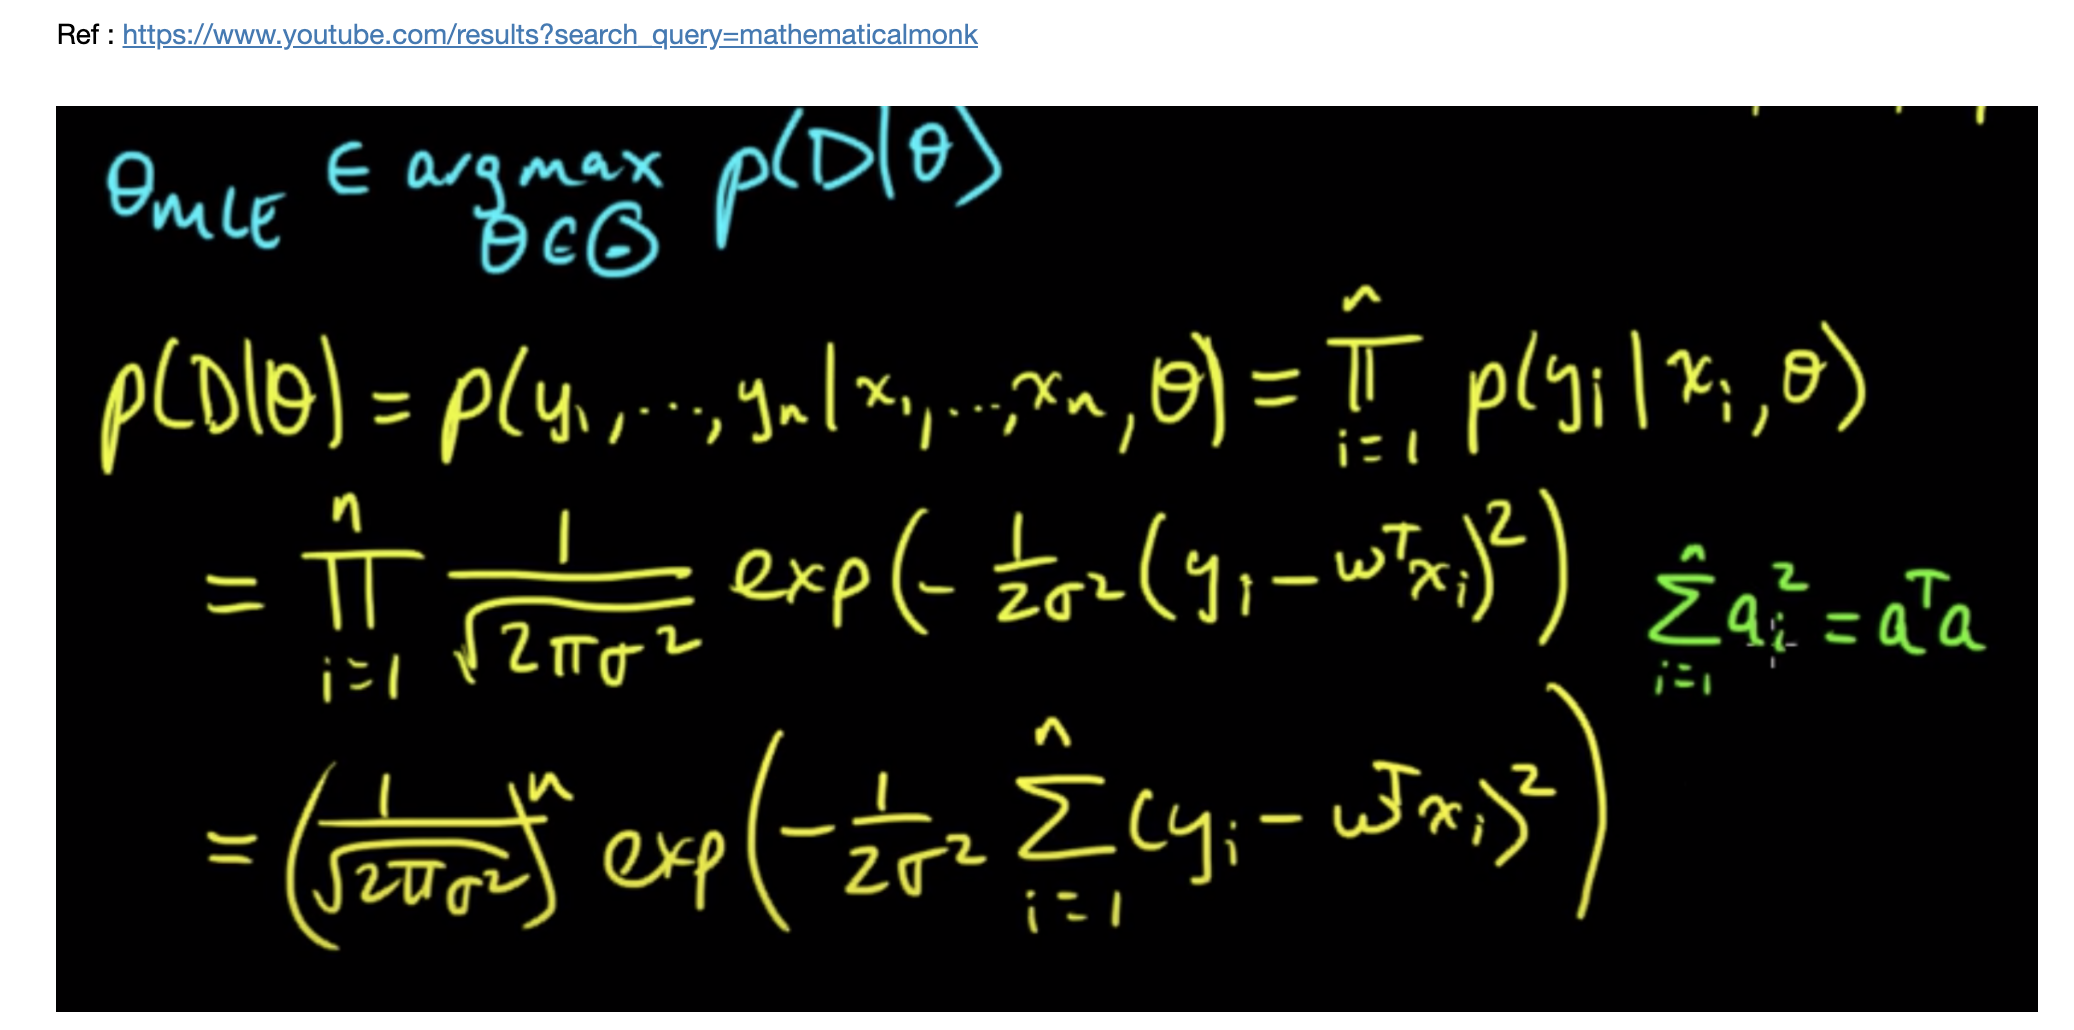 Ref : https://www.youtube.com/results?search_query=mathematicalmonk
θ_MLE ∈ argmax_{θ∈Θ} p(D|θ)
p(D|θ) = p(y₁,...,yₙ|x₁,...,xₙ,θ) = ∏_{i=1}^{n} p(yᵢ|xᵢ,θ)
= ∏_{i=1}^{n} 1/√(2πσ²) exp(-1/(2σ²) (yᵢ-wᵀxᵢ)²)
∑_{i=1}^{n} aᵢ² = aᵀa
= (1/√(2πσ²))ⁿ exp(-1/(2σ²) ∑_{i=1}^{n} (yᵢ-wᵀxᵢ)²)